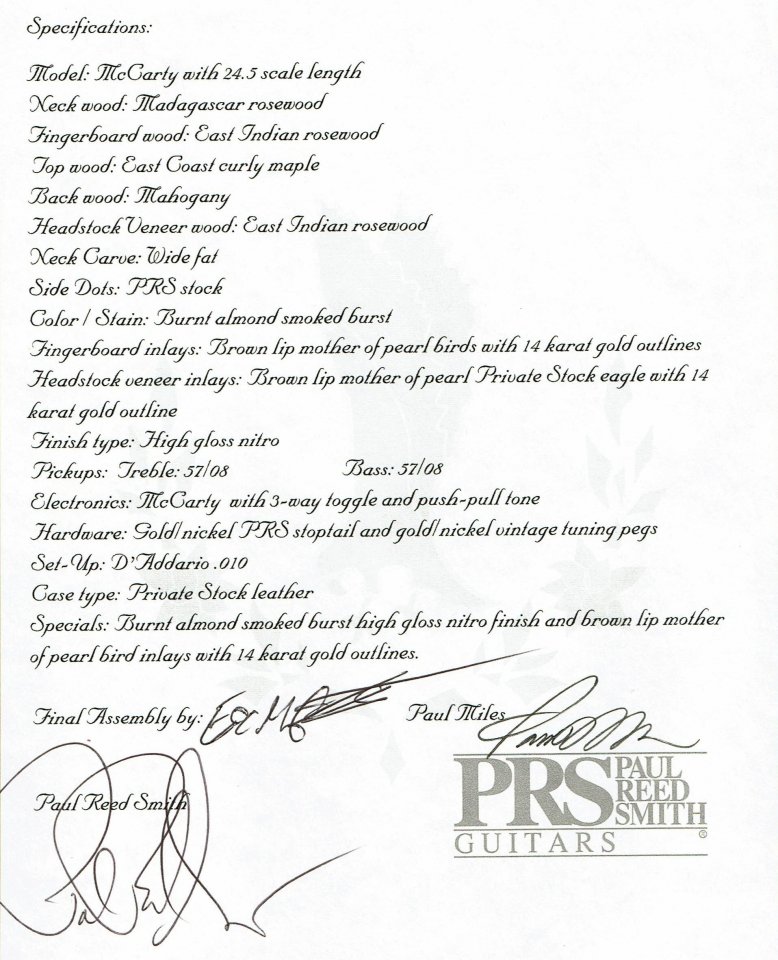 Specifications:
Model: McCarty with 24.5 scale length
Neck wood: Madagascar rosewood
Fingerboard wood: East Indian rosewood
Top wood: East Coast curly maple
Back wood: Mahogany
Headstock Veneer wood: East Indian rosewood
Neck Carve: Wide fat
Side Dots: PRS stock
Color / Stain: Burnt almond smoked burst
Fingerboard inlays: Brown lip mother of pearl birds with 14 karat gold outlines
Headstock veneer inlays: Brown lip mother of pearl Private Stock eagle with 14
karat gold outline
Finish type: High gloss nitro
Pickups: Treble: 57/08 Bass: 57/08
Electronics: McCarty with 3-way toggle and push-pull tone
Hardware: Gold/nickel PRS stoptail and gold/nickel vintage tuning pegs
Set-Up: D'Addario .010
Case type: Private Stock leather
Specials: Burnt almond smoked burst high gloss nitro finish and brown lip mother
of pearl bird inlays with 14 karat gold outlines.
Final Assembly by:
Paul Miles
Paul Reed Smith
PRS PAUL
REED
SMITH
GUITARS ®